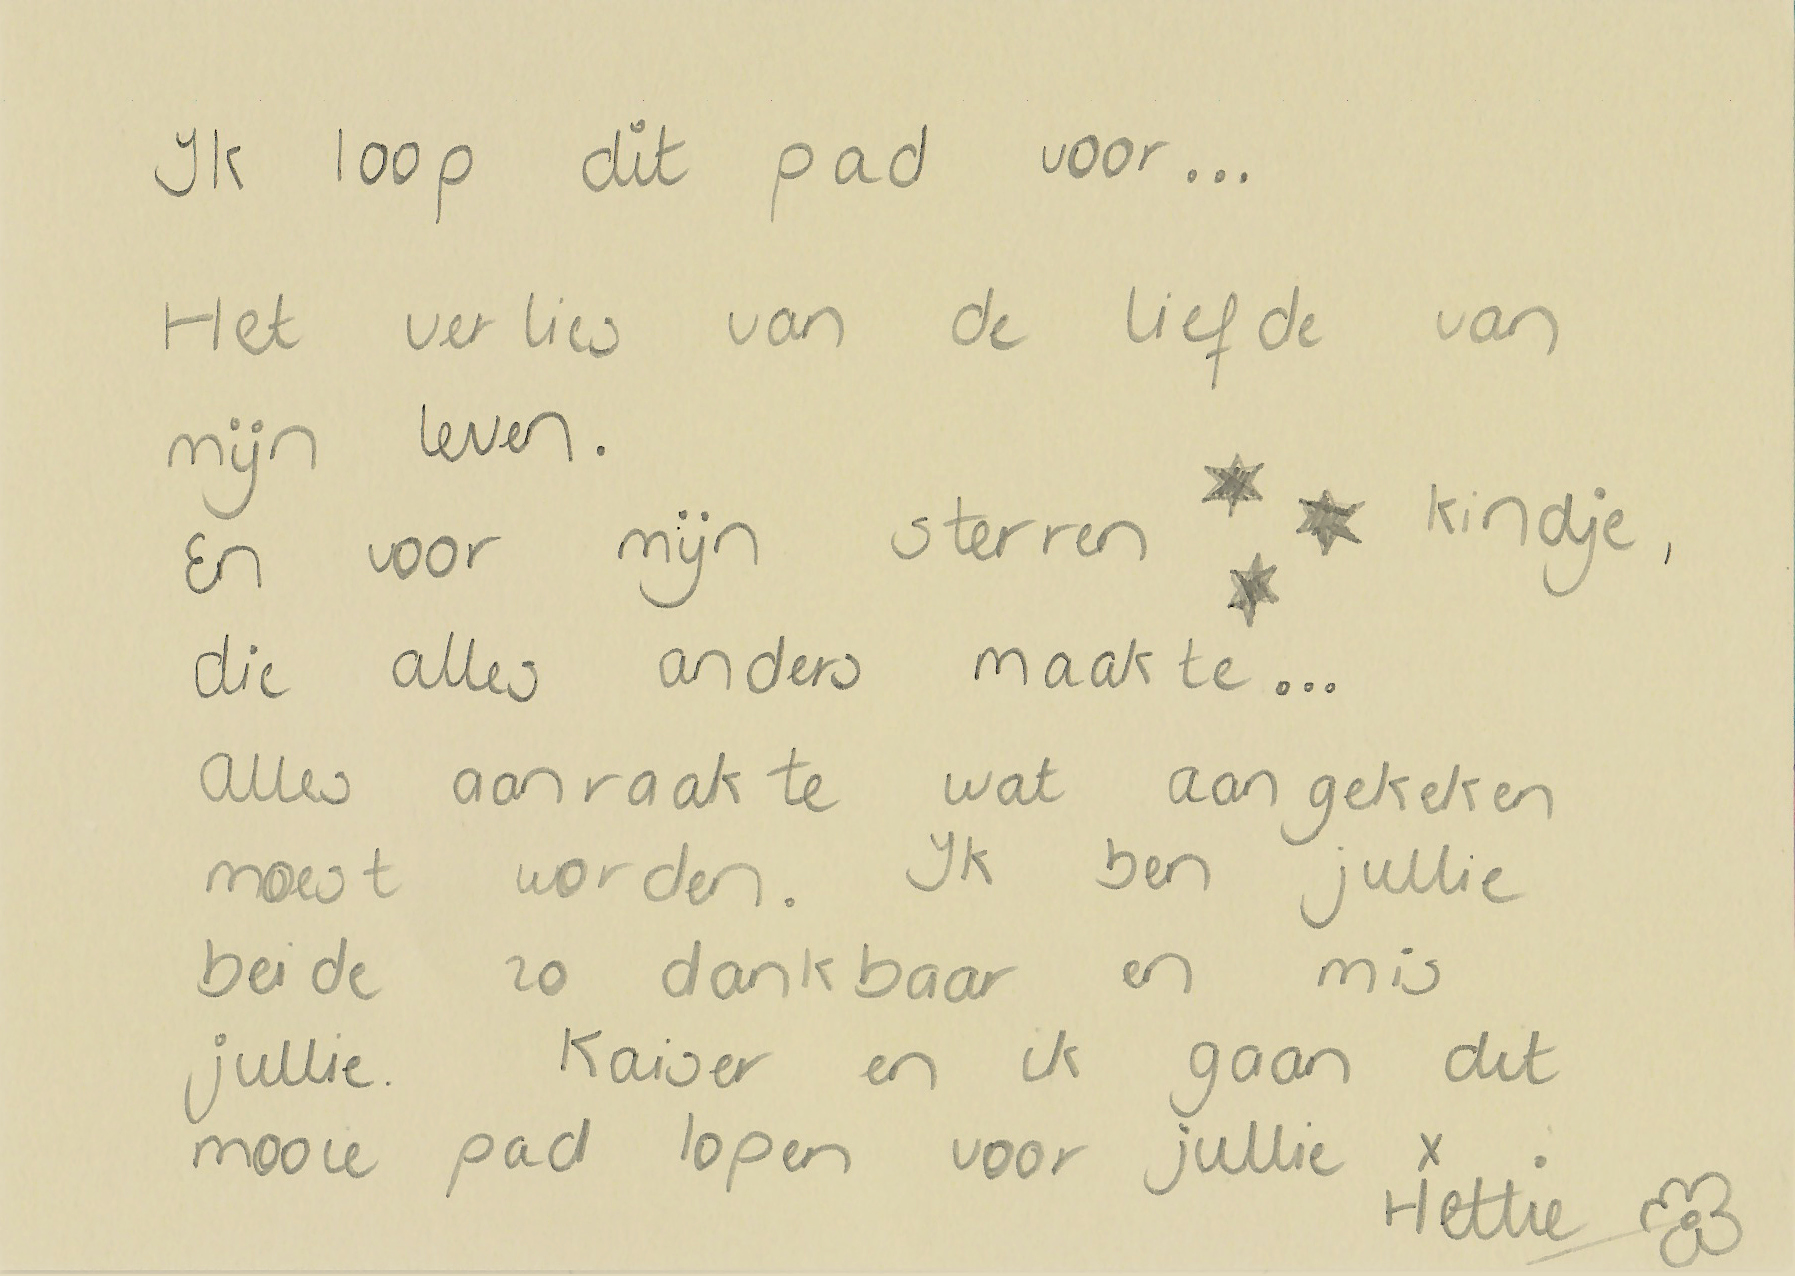 Ik loop dit pad voor...
Het verlies van de liefde van
mijn leven.
En voor mijn sterren kindje,
die alles anders maakte...
alles aanraakte wat aangekeken
moest worden. Ik ben jullie
beide zo dankbaar en mis
jullie. Kaiser en ik gaan dit
mooie pad lopen voor jullie x
Hettie